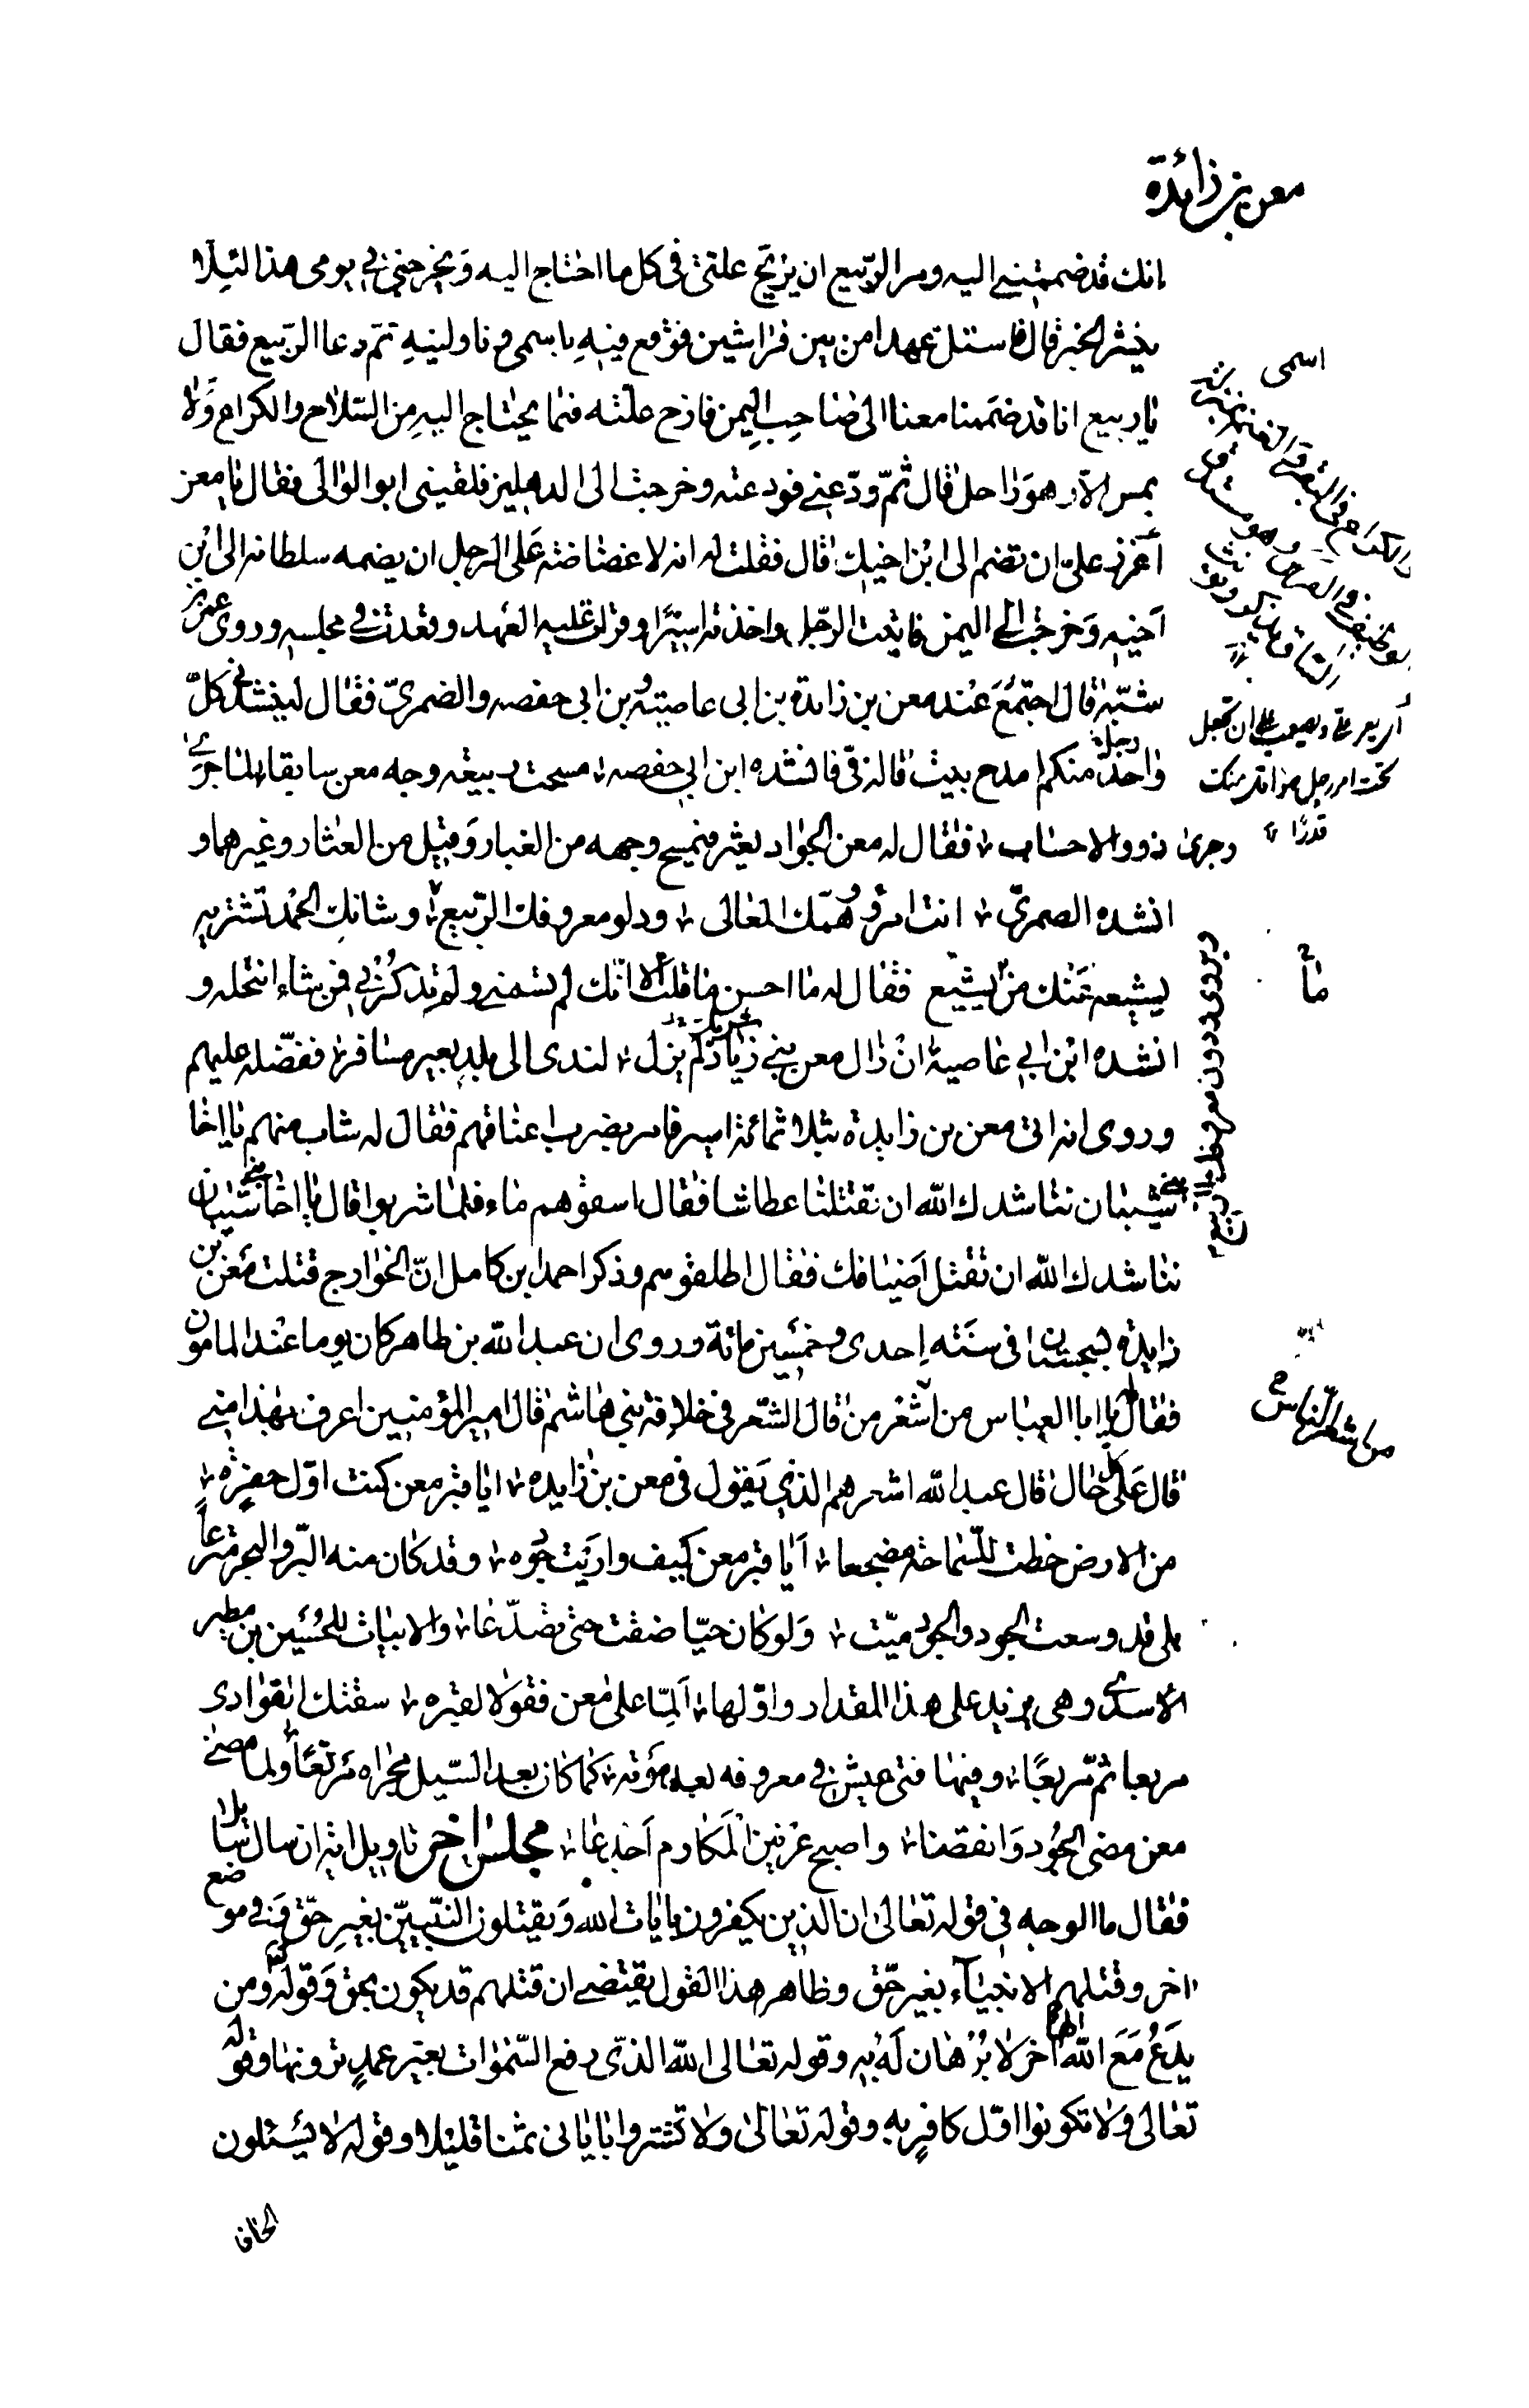 معن بن زائدة
انك قد ضممتني اليه ومر الربيع ان يزيح علتي في كل ما احتاج اليه ويخرجني في يومى هذا لئلا
ينتشر الخبر قال فاستل عهدا من بين فراشين فوقع فيه باسمى وناولنيه ثم دعا الربيع فقال
يا ربيع انا قد ضممنا معنا الى صاحب اليمن فازح علته فيما يحتاج اليه من السلاح والكراع ولا
يمس الا وهو راحل قال ثم ودعني فودعته وخرجت الى الدهليز فلقيني ابو الوالى فقال يا معن
أعزز علي ان تضم الى ابن اخيك قال فقلت له انه لا غضاضة على الرجل ان يضمه سلطانه الى ابن
اخيه وخرجت الى اليمن فاتيت الرجل واخذته اسيرا وقرات عليه العهد وقعدت في مجلسه وروى عمر بن
شبة قال اجتمع عند معن بن زائدة بن ابى عاصية وبن ابى حفصه والضمرى فقال لينشدني كل
رجل
واحد منكم امدح بيت قاله في فانشده ابن ابي حفصه ، مسحت ربيعة وجه معن سابقا ، لما جرى
وجرى ذوو الاحساب ، فقال له معن الجواد يعثر فيمسح وجهه من الغبار وقيل من العثار وغيرهما و
انشده الضمرى ، انت امرؤ همك المعالى ، ودلو معروفك الربيع ، وشانك الحمد تشتريه
يشيعه عنك من يشيع فقال له ما احسن ما قلت الا انك لم تسمني ولم تذكرني فمن شاء انتحله و
انشده ابن ابي عاصية ان زال معن بني زياد لم يزل ، لندى الى بلد بعير مسافر ، ففضله عليهم
وروى انه اتى معن بن زايدة بثلاثمائة اسير فامر بضرب اعناقهم فقال له شاب منهم يا اخا
بني شيبان نناشدك الله ان تقتلنا عطاشا فقال اسقوهم ماء فلما شربوا قال يا اخا بني شيبان
نناشدك الله ان تقتل اضيافك فقال اطلقوهم وذكر احمد ابن كامل ان الخوارج قتلت معن بن
زايدة بسجستان في سنة احدى وخمسين مائة وروى ان عبد الله بن طاهر كان يوما عند المامون
فقال يا ابا العباس من اشعر من قال الشعر في خلافة بني هاشم قال امير المؤمنين اعرف بهذا مني
قال على كل حال قال عبد الله اشعرهم الذي يقول في معن بن زايده ، ايا قبر معن كنت اول حفرة ،
من الارض خطت للسماحة مضجعا ، ايا قبر معن كيف واريت جوده ، وقد كان منه البر والبحر مترعا
بلى قد وسعت الجود والجود ميت ، ولو كان حيا ضقت حتى تصدعا ، والابيات للحسين بن مطير
الاسدي وهى تزيد على هذا المقدار واولها ، المّا على معن فقولا لقبره ، سقتك الغوادى
مربعا ثم مربعًا ، وفيها فتى عيش في معروفه بعد موته ، كما كان بعد السيل مجراه مرتعا ولما مضى
معن مضى الجود وانقضا ، واصبح عرنين المكارم اجدعا ، مجلس اخر تاويل اية ان سال سائل
فقال ما الوجه في قوله تعالى ان الذين يكفرون بايات الله ويقتلون النبيين بغير حق وفي موضع
اخر وقتلهم الانبياء بغير حق وظاهر هذا القول يقتضي ان قتلهم قد يكون بحق وقوله ومن
يدع مع الله الها آخر لا برهان له به وقوله تعالى الله الذى رفع السموات بغير عمد ترونها وقوله
تعالى ولا تكونوا اول كافر به وقوله تعالى ولا تشتروا باياتى ثمنا قليلا وقوله لا يسئلون
اسمى
تحت امر رجل هذا قدر منك
قدرًا
ما
ويروى ودون معروفك الربيع
من شطر الناس
الحاقا